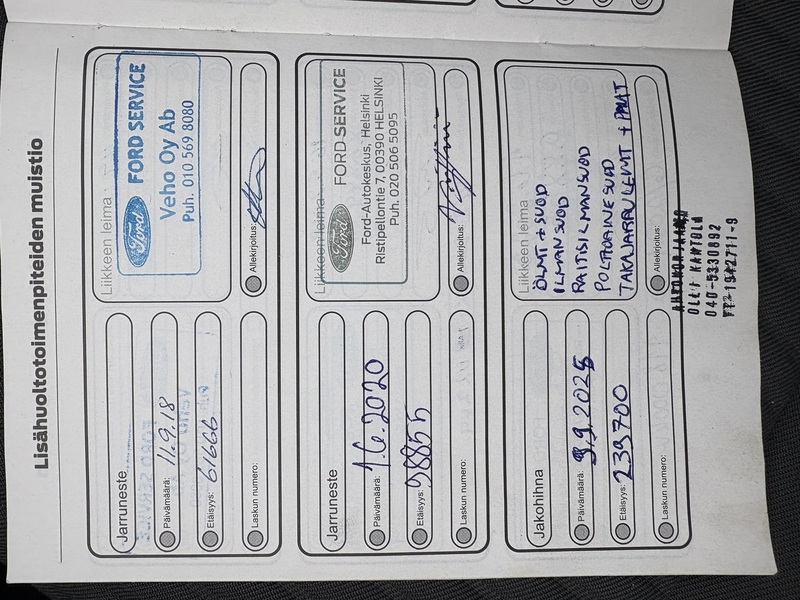 Lisähuoltotoimenpiteiden muistio
Jarruneste
Päivämäärä: 11.9.18
Etäisyys: 61666
Laskun numero:
Liikkeen leima
Ford FORD SERVICE
Veho Oy Ab
Puh. 010 569 8080
Allekirjoitus:
Jarruneste
Päivämäärä: 1.6.2020
Etäisyys: 98855
Laskun numero:
Liikkeen leima
Ford FORD SERVICE
Ford-Autokeskus, Helsinki
Ristipellontie 7, 00390 HELSINKI
Puh. 020 506 5095
Allekirjoitus:
Jakohihna
Päivämäärä: 3.9.2025
Etäisyys: 239700
Laskun numero:
Liikkeen leima
ÖLJYT + SUOD
ILMANSUOD
RAITISILMANSUOD
POLTTOAINE SUOD
TAKAJARRULEVYT + PALAT
Allekirjoitus:
AUTOKORJAAMO
OLLI KANTOLA
040-5330892